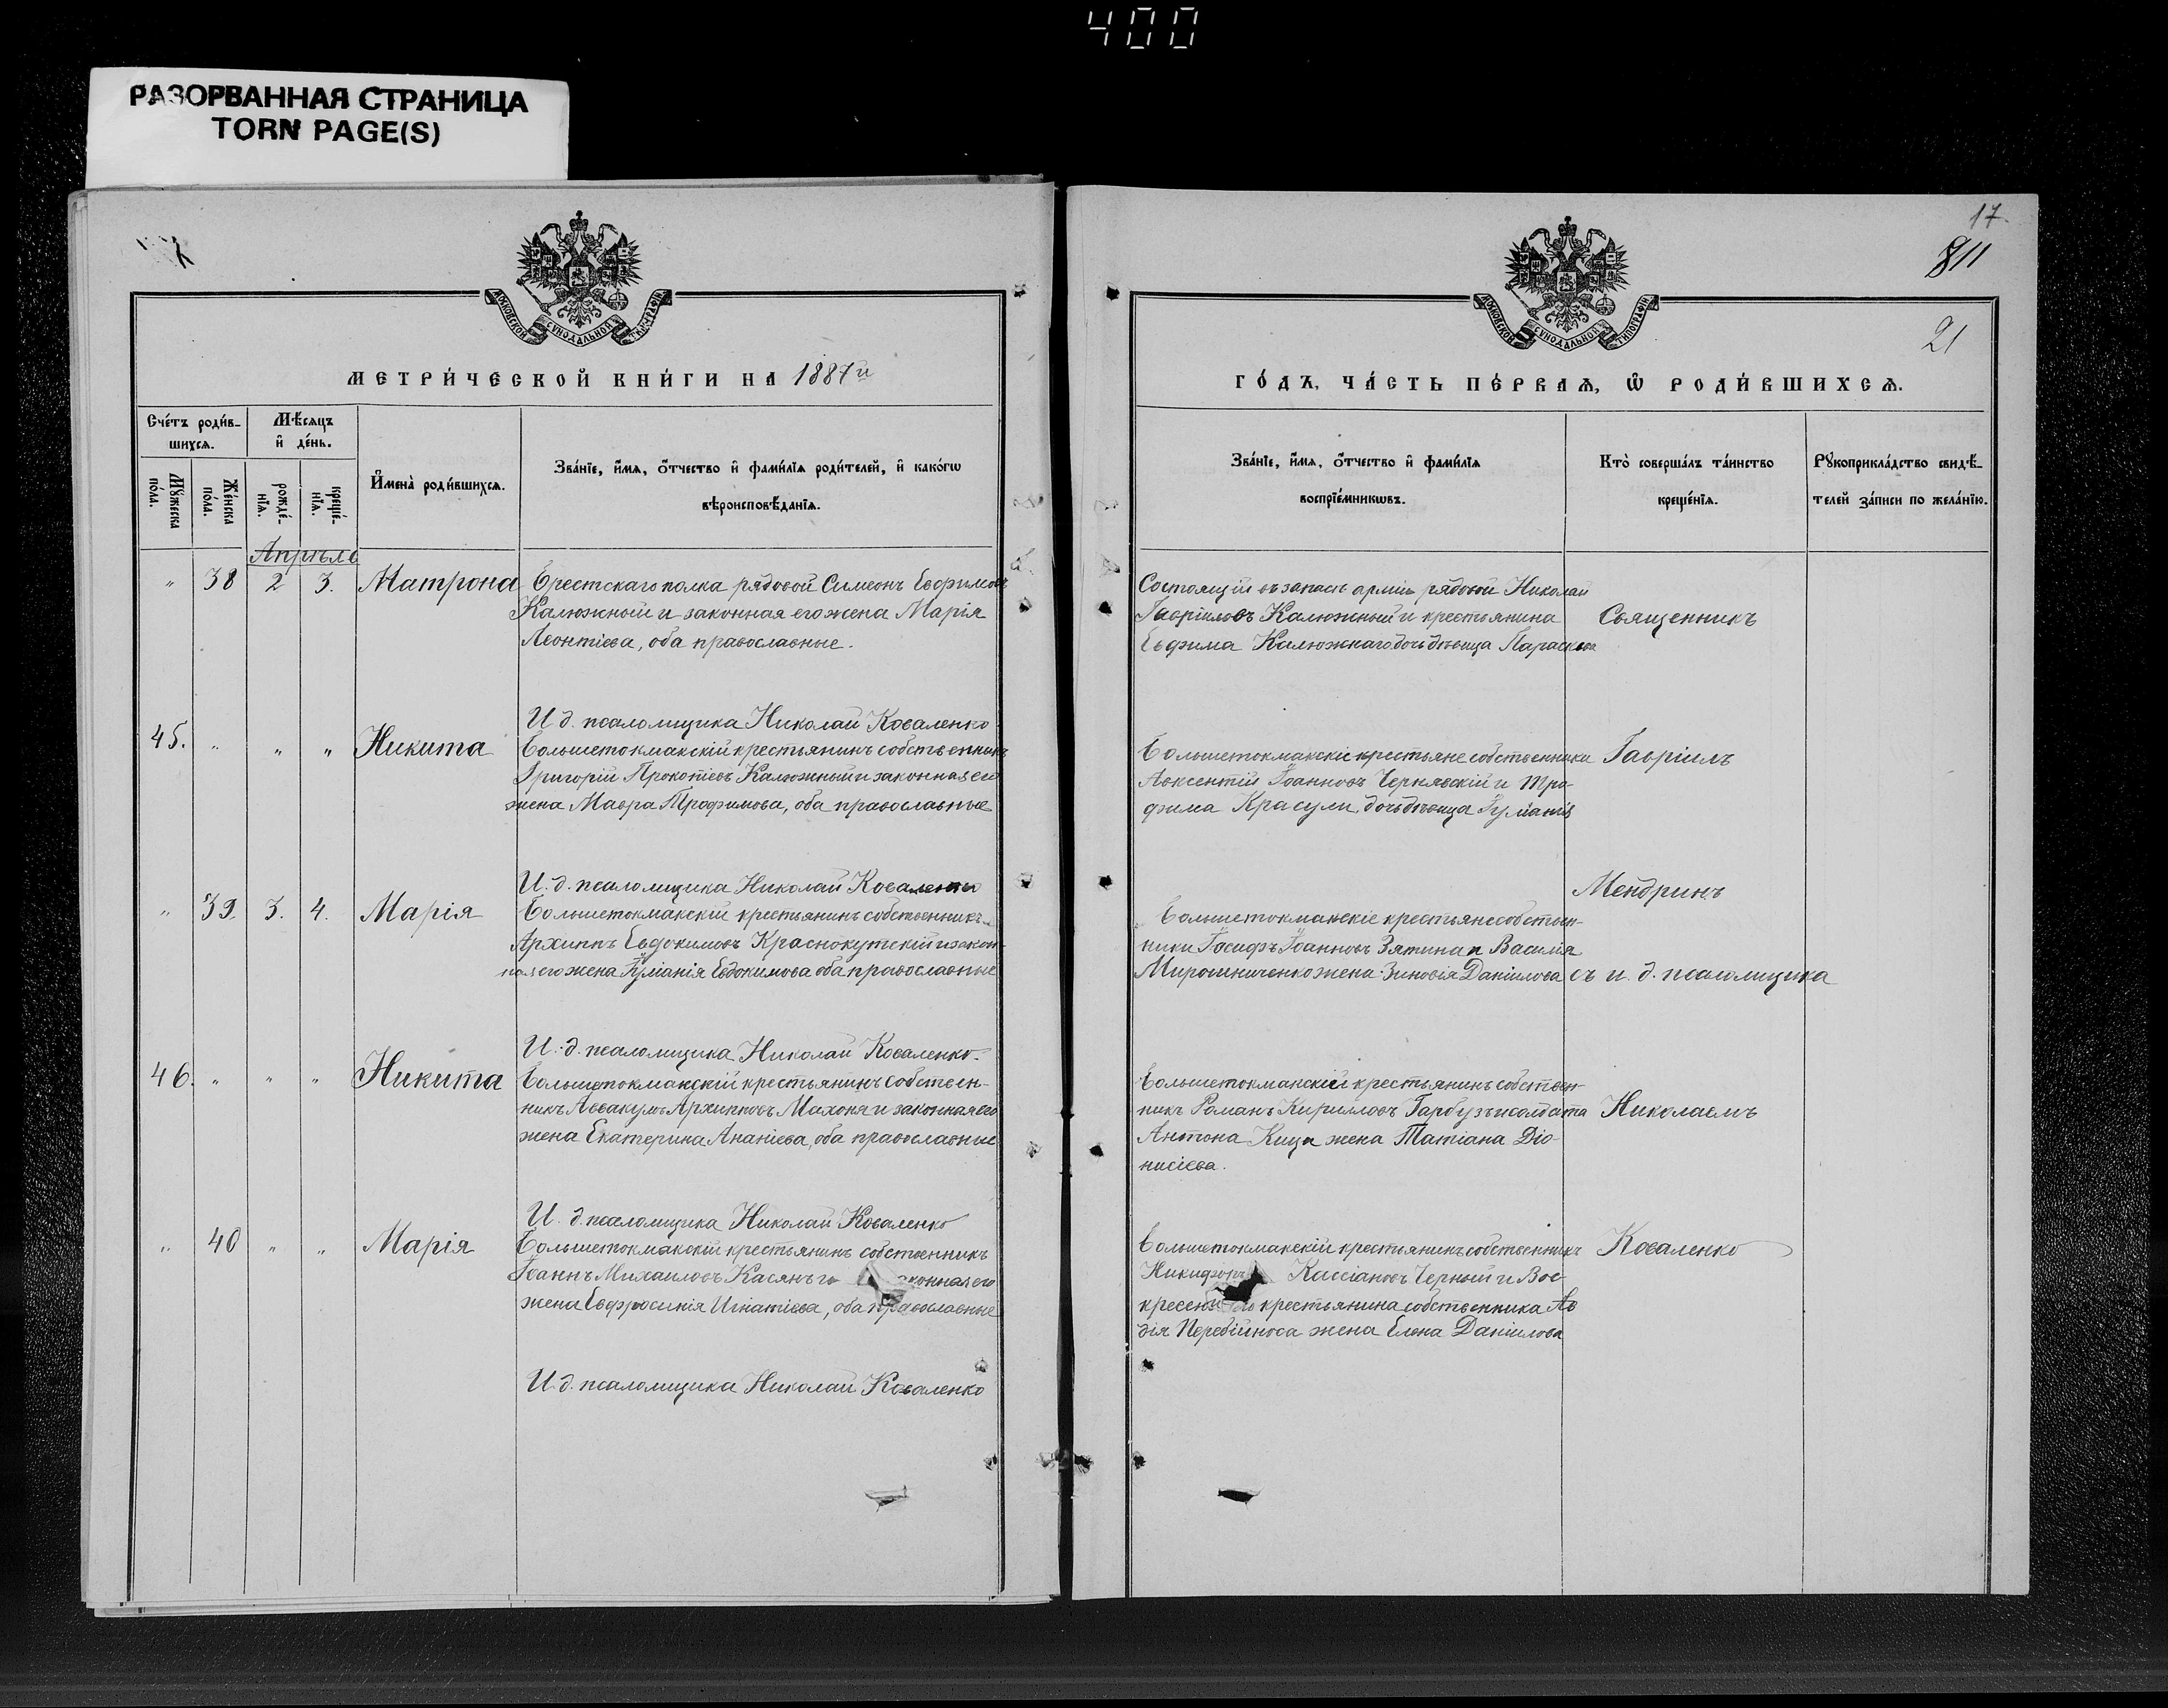 400
РАЗОРВАННАЯ СТРАНИЦА
TORN PAGE(S)
МОСКОВСКОЙ СѴНОДАЛЬНОЙ ТИПОГРАФІИ
МЕТРИ́ЧЕСКОЙ КНИ́ГИ НА 1887й
Сче́тъ роди́в-
шихсѧ.
Мѣ́сѧцъ
и҆ де́нь.
Мꙋ́жеска
по́ла.
Же́нска
по́ла.
рожде́-
нїѧ.
креще́-
нїѧ.
И҆мена̀ роди́вшихсѧ.
Зва́нїе, и҆́мѧ, ѻ҆́тчество и҆ фами́лїѧ роди́телей, и҆ како́гѡ
вѣроисповѣ́данїѧ.
Апрѣль
" 38 2 3. Матрона Брестскаго полка рядовой Симеонъ Евфимовъ
Калюжный и законная его жена Марія
Леонтіева, оба православные.
И. д. псаломщика Николай Коваленко
45. " " " Никита Большетокмакскій крестьянинъ собственникъ
Григорій Прокопіевъ Калюжный и законная его
жена Мавра Трофимова, оба православные
И. д. псаломщика Николай Коваленко
" 39. 3. 4. Марія Большетокмакскій крестьянинъ собственникъ
Архиппъ Евдокимовъ Краснокутскій и закон-
ная его жена Іуліанія Евдокимова оба православные
И. д. псаломщика Николай Коваленко.
46. " " " Никита Большетокмакскій крестьянинъ собствен-
никъ Аввакумъ Архипповъ Махоня и законная его
жена Екатерина Ананіева, оба православные
И. д. псаломщика Николай Коваленко
" 40 " " Марія Большетокмакскій крестьянинъ собственникъ
Іоаннъ Михаиловъ аконная его
жена Евфросинія Игнатіева, оба православные
И. д. псаломщика Николай Коваленко
17.
811
21
МОСКОВСКОЙ СѴНОДАЛЬНОЙ ТИПОГРАФІИ
ГО́ДЪ, ЧА́СТЬ ПЕ́РВАѦ, Ѡ҆ РОДИ́ВШИХСѦ.
Зва́нїе, и҆́мѧ, ѻ҆́тчество и҆ фами́лїѧ
воспрїе́мникѡвъ.
Кто̀ соверша́лъ та́инство
креще́нїѧ.
Рꙋкоприкла́дство свидѣ́-
телей за́писи по жела́нїю.
Состоящій въ запасѣ арміи рядовой Николай
Гавріиловъ Калюжный и крестьянина
Евфима Калюжнаго дочь дѣвица Параскева
Священникъ
Большетокмакскіе крестьяне собственники
Авксентій Іоанновъ Чернявскій и Тро-
фима Красули, дочь дѣвица Іуліанія
Гавріилъ
Мендринъ
Большетокмакскіе крестьяне собствен-
ники Іосифъ Іоанновъ Зятина и Василія
Мирошниченко жена Зиновія Даніилова
съ и. д. псаломщика
Большетокмакскій крестьянинъ собствен-
никъ Романъ Кирилловъ Гарбузъ и солдата
Антона Кица жена Татіана Діо-
нисіева.
Николаемъ
Большетокмакскій крестьянинъ собственникъ
Никифоръ Кассіановъ Черный и Вос-
кресен крестьянина собственника Ав
дія Перебійноса жена Елена Даніилова
Коваленко